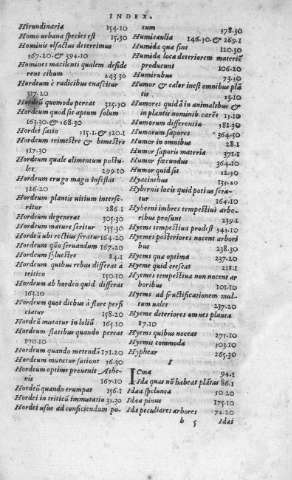 INDEX.
Hirundinaria 154.10
Homo urbana species est 15.30
Hominis olfactus deterimus
167.20. & 394.10
Homines macilenti quidem desiderent
cibum 243.30
Hordeum è radicibus enascitur
317.20
Hordeū quomodo pereat 325.30
Hordeum quod sit aptum solum
163.30. & 168.30
Hordei satio 151.1. & 320.1
Hordeum trimestre & bimestre
317.30
Hordeum quale alimentum postulet
299.10
Hordeum eruga magis infestat
326.20
Hordeum plantis uitium interseritur
286.1
Hordeum degenerat 305.30
Hordeum mature seritur 155.30
Hordeū ubi rectius seratur 164.20
Hordeum quō seruandum 167.20
Hordeum syluestre 84.1
Hordeum quibus rebus differat à
tritico 150.10
Hordeum ab hordeo quid differat
161.10
Hordeum quot diebus à flore perficiatur
158.20
Hordeū mutatur in loliū 165.10
Hordeum flatibus quando pereat
170.10
Hordeum quando metendū 171.20
Hordeum metitur satione 56.30
Hordeum optime prouenit Atheris
167.10
Hordeū quando erumpat 156.1
Hordei in triticū immutatio 31.30
Hordei usus ad conficiendum potum
178.30
Humicanlia 146.30. & 269.1
Humida qua sint 120.30
Humida loca deteriorem materiē
producunt 106.20
Humiribus 73.10
Humor & calor inest omnibus plātis
15.10
Humores quidā in animalibus &
in plantis nominib. carēt 13.10
Humorum differentia 381.30
Humorum sapores 364.30
Humor in omnibus 28.1
Humor saporis materia 371.1
Humor fœcundus 364.10
Humor quid sit 12.30
Hyacinthus 131.20
Hybernis locis quid potius seratur
164.10
Hyberni imbres tempestiui arboribus
prosunt 239.1
Hyems tempestiua prodest 341.10
Hyemes posteriores nocent arboribus
238.30
Hyems qua optima 237.20
Hyems quid crescat 238.1
Hyems tempestiua non nocent arboribus
101.10
Hyemes ad fructificationem multum
ualet 237.20
Hyeme deteriores omnes planta
87.10
Hyems quibus noceat 275.10
Hyems commoda 103.10
Hyphear 265.30
I
IOna 94.1
Ida quas nō habeat plātas 86.1
Ida spelunca 50.20
Ida pinus 175.10
Ida peculiares arbores 72.20
b 5 Idæi